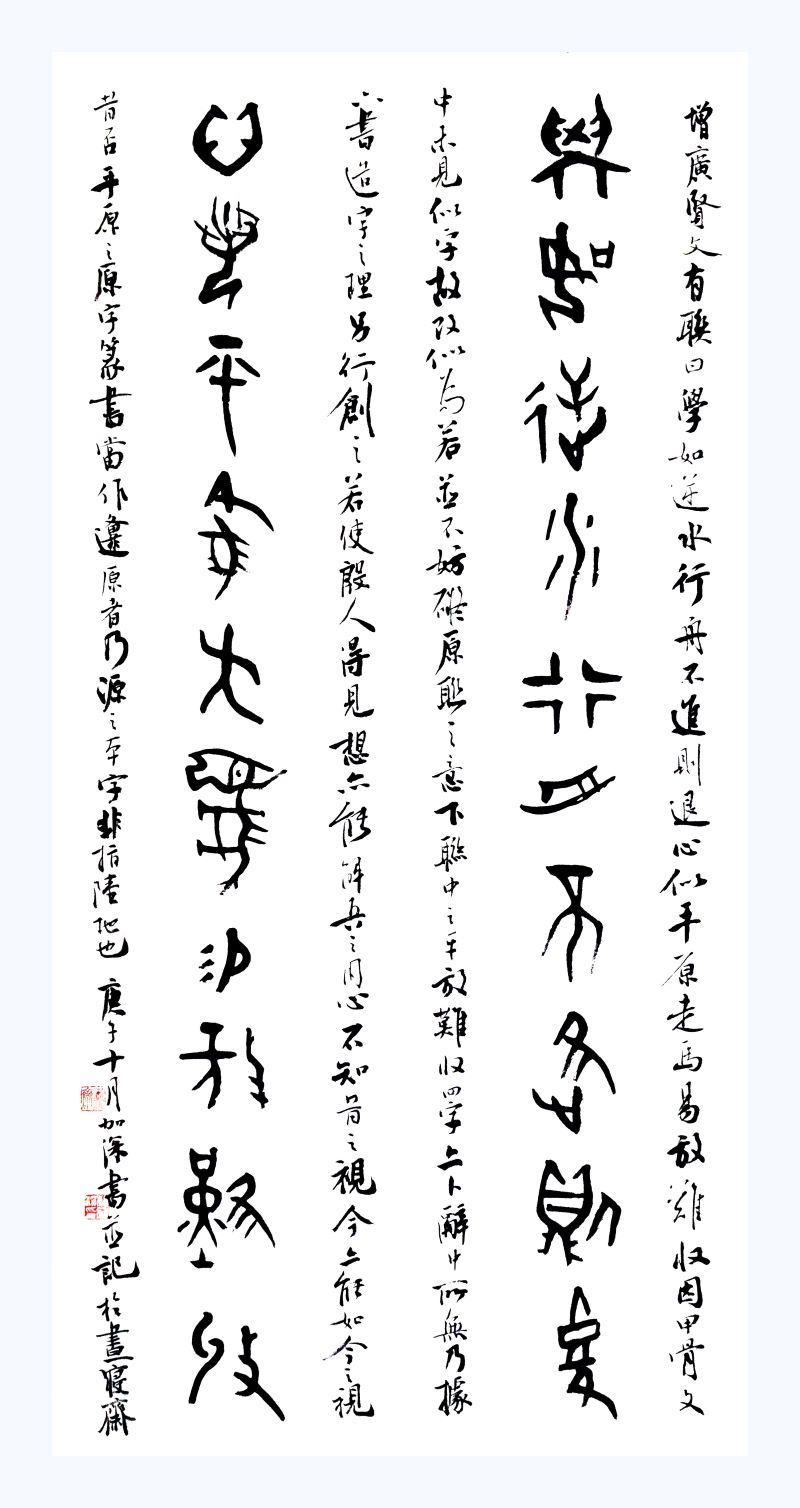 增廣賢文有聯曰學如逆水行舟不進則退心似平原走馬易放難收因甲骨文
學如逆水行舟不進則退
中未見似字故改似為若並不妨礙原聯之意下聯中之平放難收四字亦卜辭中所無乃據
六書造字之理另行創之若使殷人得見想亦能解吾之用心不知昔之視今亦能如今之視
心若平原走馬易放難收
昔否平原之原字篆書當作邍原者乃源之本字非指陸地也庚午十月加深書並記於晝寢齋